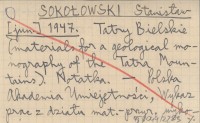 SOKOŁOWSKI Stanisław
[jun.] 1947. Tatry Bielskie
(materials for a geological mo-
nography of the Tatra Moun-
tains), Notatka. — Polska
Akademia Umiejętności, Wykaz
prac z działu mat.-przyr.